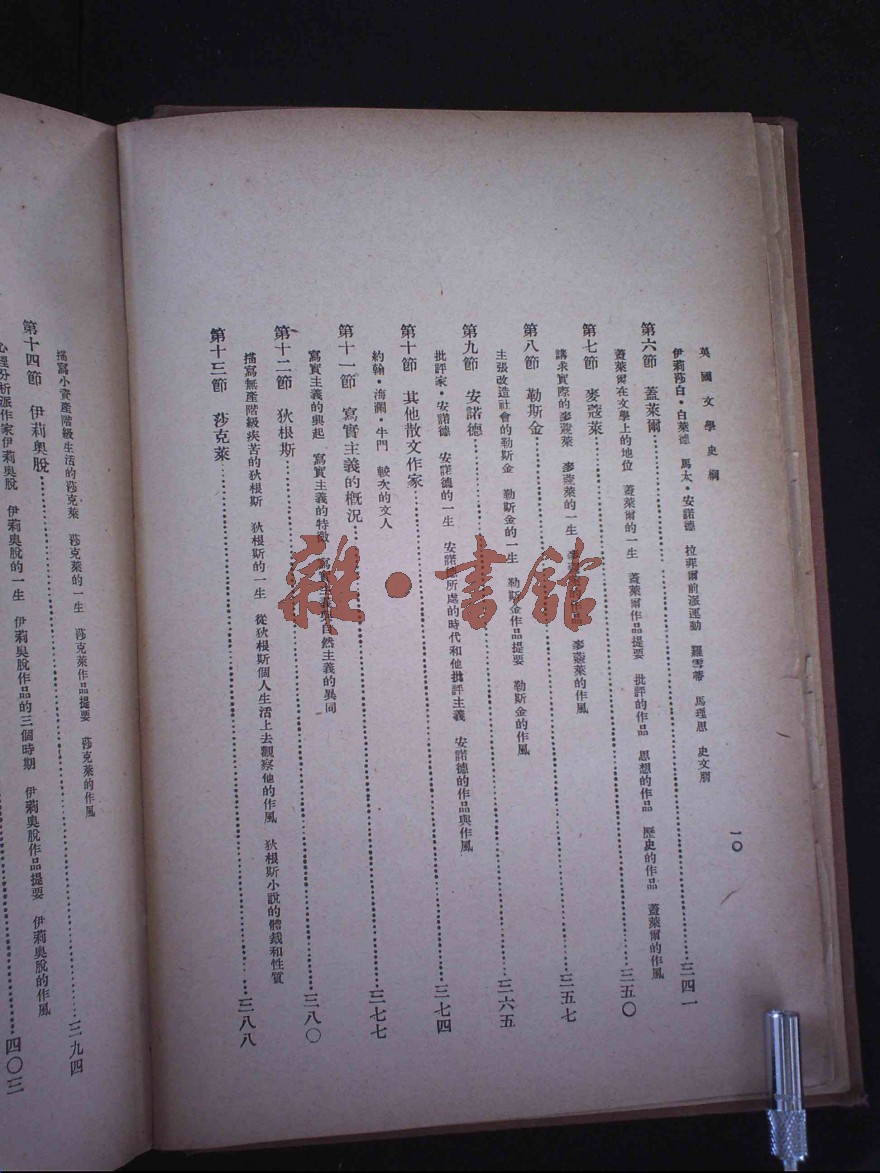 英國文學史綱
一〇
伊莉莎白・白萊德 馬太・安諾德 拉菲爾前派運動 羅雪蒂 馬理思 史文朋
第六節 蓋萊爾……三四一
蓋萊爾在文學上的地位 蓋萊爾的一生 蓋萊爾作品提要 批評的作品 思想的作品 歷史的作品 蓋萊爾的作風
第七節 麥蔻萊……三五〇
講求實際的麥蔻萊 麥蔻萊的一生 麥蔻萊的作品 麥蔻萊的作風
第八節 勒斯金……三五七
主張改造社會的勒斯金 勒斯金的一生 勒斯金作品提要 勒斯金的作風
第九節 安諾德……三六五
批評家・安諾德 安諾德的一生 安諾德所處的時代和他批評主義 安諾德的作品與作風
第十節 其他散文作家……三七四
約翰・海蘭・牛門 較次的文人
第十一節 寫實主義的概況……三七七
寫實主義的興起 寫實主義的特徵 寫實主義與自然主義的異同
第十二節 狄根斯……三八〇
描寫無產階級疾苦的狄根斯 狄根斯的一生 從狄根斯個人生活上去觀察他的作風 狄根斯小說的體裁和性質
第十三節 莎克萊……三八八
描寫小資產階級生活的莎克萊 莎克萊的一生 莎克萊作品提要 莎克萊的作風
第十四節 伊莉奧脫……三九四
心理分析派作家伊莉奧脫 伊莉奧脫的一生 伊莉奧脫作品的三個時期 伊莉奧脫作品提要 伊莉奧脫的作風
……四〇三
雜・書館